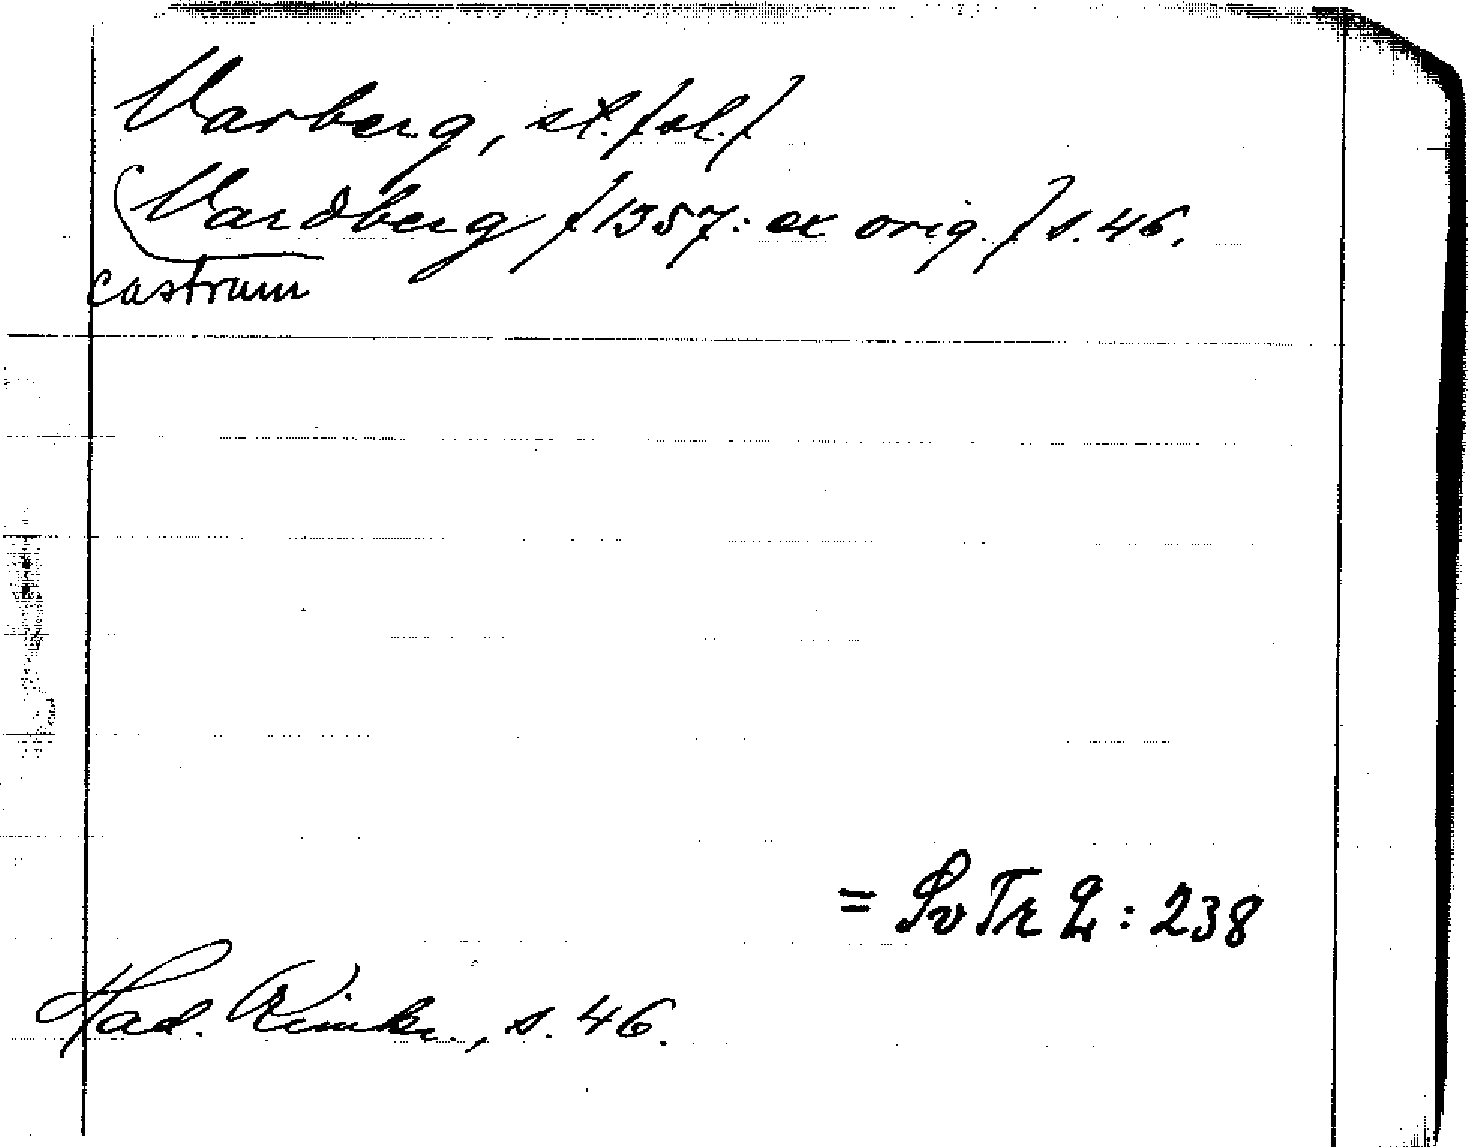 Varberg, st. [sl.]
Vardberg [1357: ex orig.] s. 46.
castrum
= Sv Tr 2: 238
Had. Rimkr., s. 46.